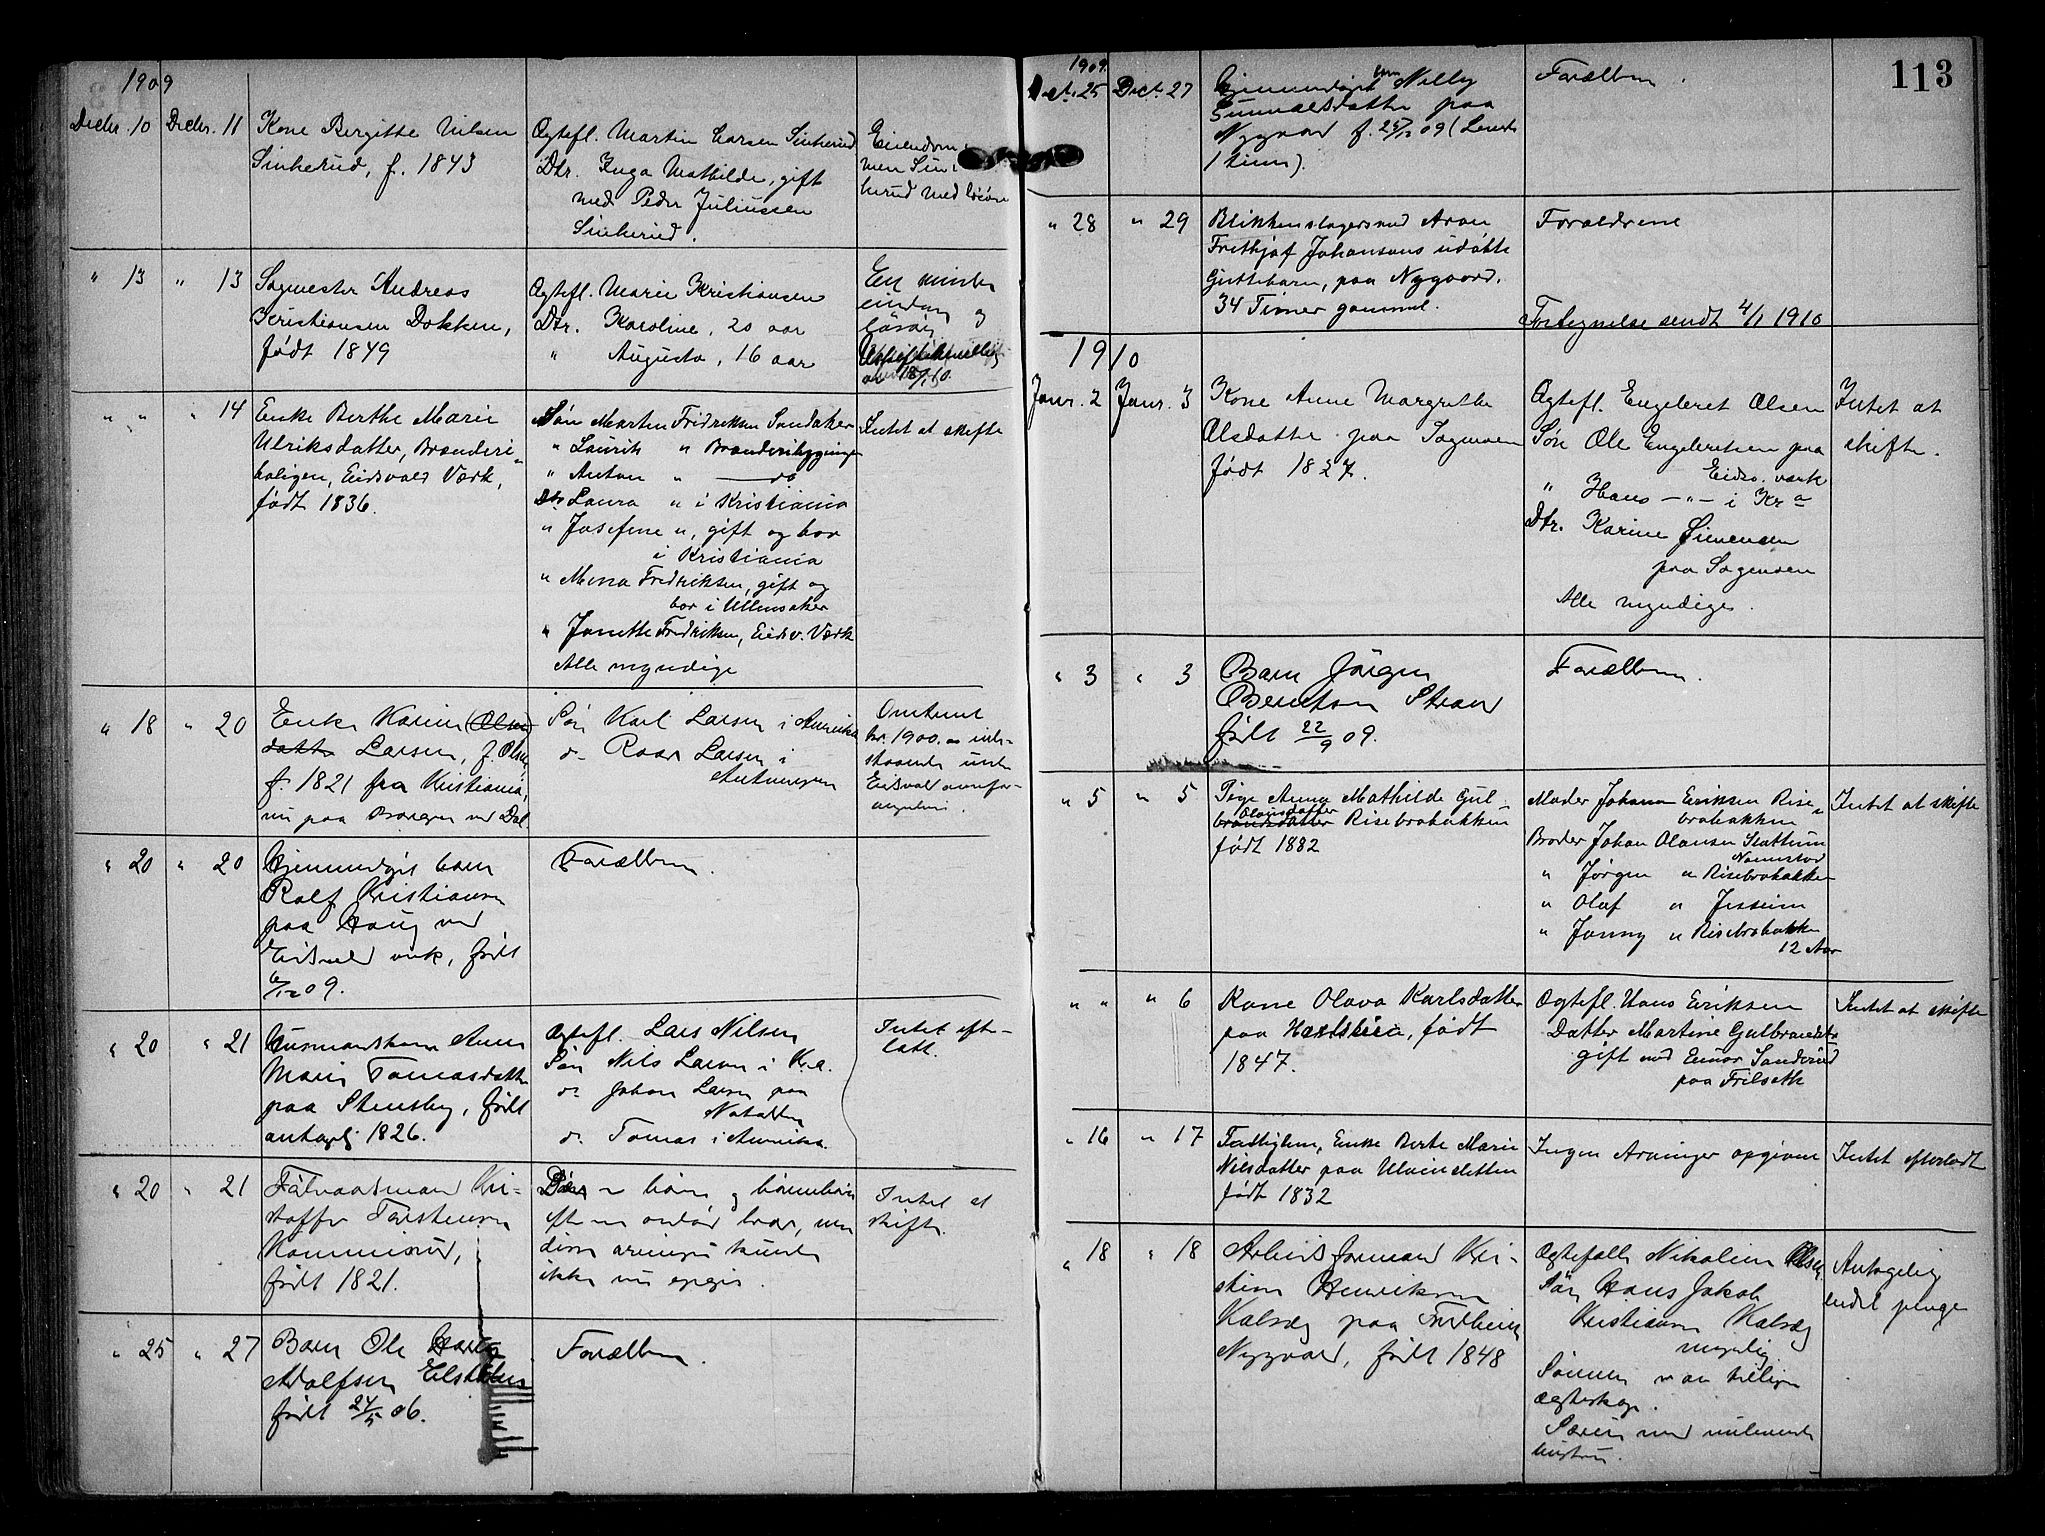 1909
Decbr. 10 Decbr. 11 Kone Birgitte Nilsen
Sinkerud, f. 1843
Ægtefl. Martin Larsen Sinkerud
Dtr. Inga Mathilde, gift
med Peder Juliussen
Sinkerud.
Eiendom-
men Sin-
kerud med løsøre
" 13 " 13 Sagmester Andreas
Kristiansen Dokken,
født 1849
Ægtefl. Marie Kristiansen
Dtr. Karoline, 20 aar
" Augusta, 16 aar
En mindre
eiendom og
løsøre
18/1 10.
" " " 14 Enke Berthe Marie
Ulriksdatter, Brænderi-
boligen, Eidsvold Værk,
født 1836.
Søn Marten Fridriksen Sandaker
" Laurits " Brænderibygningen
" Anton " — do
Dtr. Laura " i Kristiania
" Josefine ", gift og bor
i Kristiania
" Mina Fredriksen, gift og
bor i Ullensaker
" Janette Fredriksen, Eidsv. Værk
Alle myndige
Intet at skifte
" 18 " 20 Enke Karin (Olsen
datter Larsen, f. Olsen
f. 1821 fra Kristiania,
nu paa Borgen ved Dal
Søn Karl Larsen i Amerika
do Roar Larsen i
Antwerpen
Omtrent
kr. 1900.
Eidsvold
" 20 " 20 Gjenmendøpt barn
Rolf Kristiansen
paa Haug ved
Eidsvold verk, født
6/12 09.
Forældrene.
" 20 " 21 Husmandskone Anne
Marie Tomasdatter
paa Stensby, født
antagelig 1826.
Ægtefl. Lars Nilsen
Søn Nils Larsen i Kr.a.
do Johan Larsen paa
do Tomas i Amerika.
Intet efter-
latt.
" 20 " 21 Kri-
stoffer Torstensen
født 1821.
børn og børnebørn
efter en avdød bror, men
disse arvinger kunde
ikke nu opgis.
Intet at
skifte.
" 25 " 27 Barn Ole
Adolfsen
født 24/5 06.
Forældrene.
113
1909.
Dect. 25 Dect. 27 barn Nelly
Gunnalsdatter paa
Nygaard f. 25/12 09 (Levede
1 time).
Forældrene.
" 28 " 29 Blikkenslagersvend Aron
Frithjof Johansens udøbte
Guttebarn, paa Nygaard.
34 Timer gammel.
Foraldrene
Fortegnelse sendt 4/1 1910
1910
Janr. 2 Janr. 3 Kone Anne Margrethe
Olsdatter paa Sagmoen
født 1827.
Ægtefl. Engebret Olsen
Søn Ole Engebretsen paa
Eidsv. værk
" Hans — " — i Kr a
Dtr. Karine Simensen
paa Sagmoen
Alle myndige.
Intet at
skifte.
" 3 " 3 Barn Jørgen
Berntson
født 22/9 09.
Forældrene.
" 5 " 5 Pige Anna Mathilde Gul-
Olausdatter
brandsdatter Risebrobakken
født 1882
Moder Johanne Eriksen Rise-
brobakken
Broder Johan Olausen Slattum
Nannestad
" Jørgen " Risebrobakken
" Olaf " Jessheim
" Jonny " Risebrobakken
12 Aar
Intet at skifte
" " " 6 Kone Olava Karlsdatter
paa, født
1847.
Ægtefl. Hans Eriksen
Datter Martine Gulbrandsdtr
gift med Einar Sanderud
paa Frilseth
Intet at skifte
" 16 " 17 Fattiglem, Enke Berte Marie
Nilsdatter paa
født 1832
Ingen Arvinger opgiven
Intet efterladt
" 18 " 18 Arbeidsformand Kri-
stian Henriksen
Kalvåg paa
Nygaard, født 1848
Ægtefælle Nikoline Olsen
Søn Hans Jakob
Kristiansen Kalvåg
myndig
Sønnen er av tidligere
ægteskap.
Særeie med nulevende
hustru.
Antagelig
endel penge